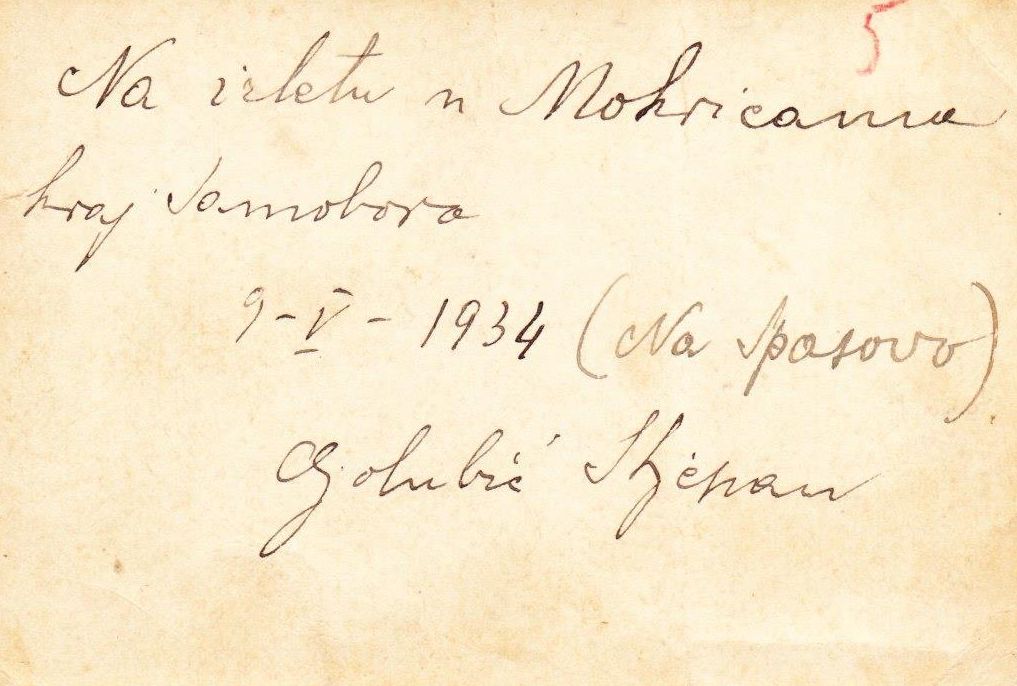 5
Na izletu u Mokricama
kraj Samobora
9-V-1934 (Na Spasovo)
Golubić Stjepan